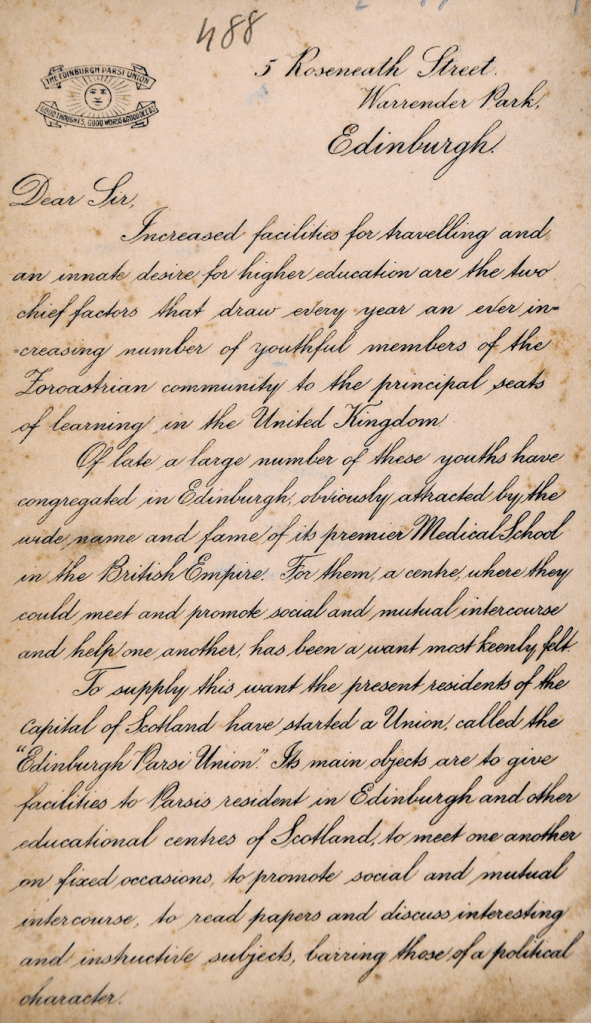 488
THE EDINBURGH PARSI UNION
GOOD THOUGHTS, GOOD WORDS & GOOD DEEDS
5 Roseneath Street.
Warrender Park.
Edinburgh.
Dear Sir,
Increased facilities for travelling and
an innate desire for higher education are the two
chief factors that draw every year an ever in=
=creasing number of youthful members of the
Zoroastrian community to the principal seats
of learning in the United Kingdom
Of late a large number of these youths have
congregated in Edinburgh, obviously attracted by the
wide name and fame of its premier Medical School
in the British Empire. For them, a centre, where they
could meet and promote social and mutual intercourse
and help one another, has been a want most keenly felt
To supply this want the present residents of the
capital of Scotland have started a Union, called the
"Edinburgh Parsi Union". Its main objects are to give
facilities to Parsis resident in Edinburgh and other
educational centres of Scotland, to meet one another
on fixed occasions, to promote social and mutual
intercourse, to read papers and discuss interesting
and instructive subjects, barring those of a political
character.